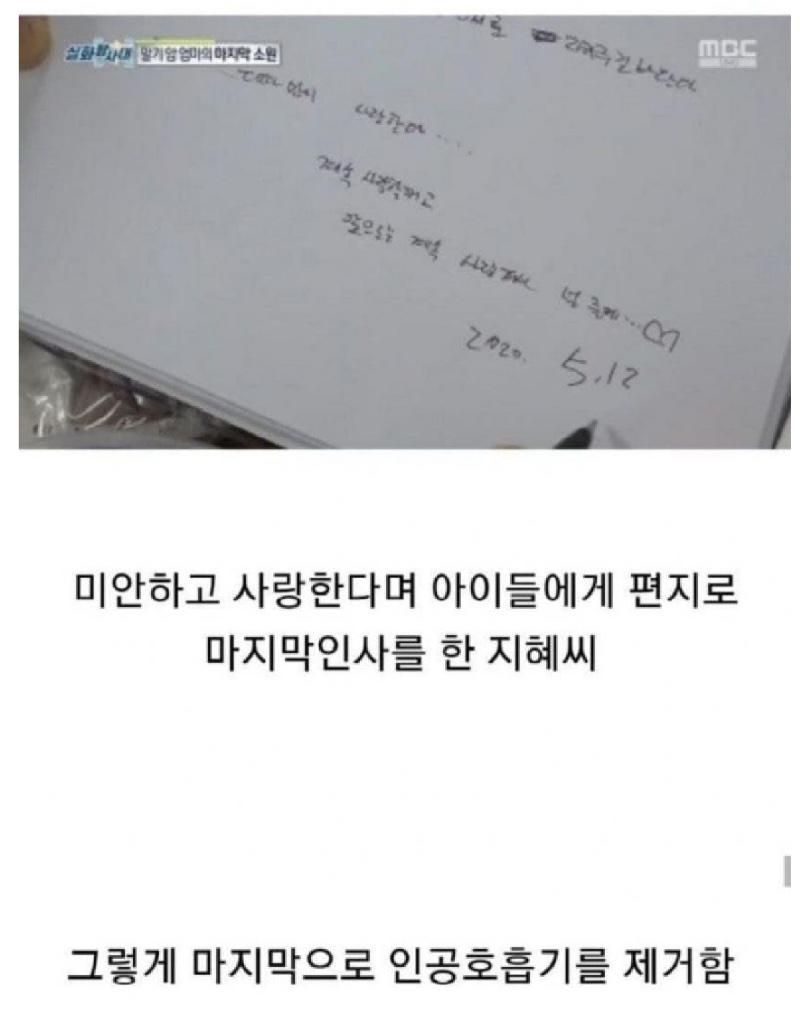 실화탐사대 말기 암 엄마의 마지막 소원
MBC
사랑한다....
계속 사랑할거고
앞으로도 계속 사랑해 줄게...♡
2020. 5.12
미안하고 사랑한다며 아이들에게 편지로
마지막인사를 한 지혜씨
그렇게 마지막으로 인공호흡기를 제거함